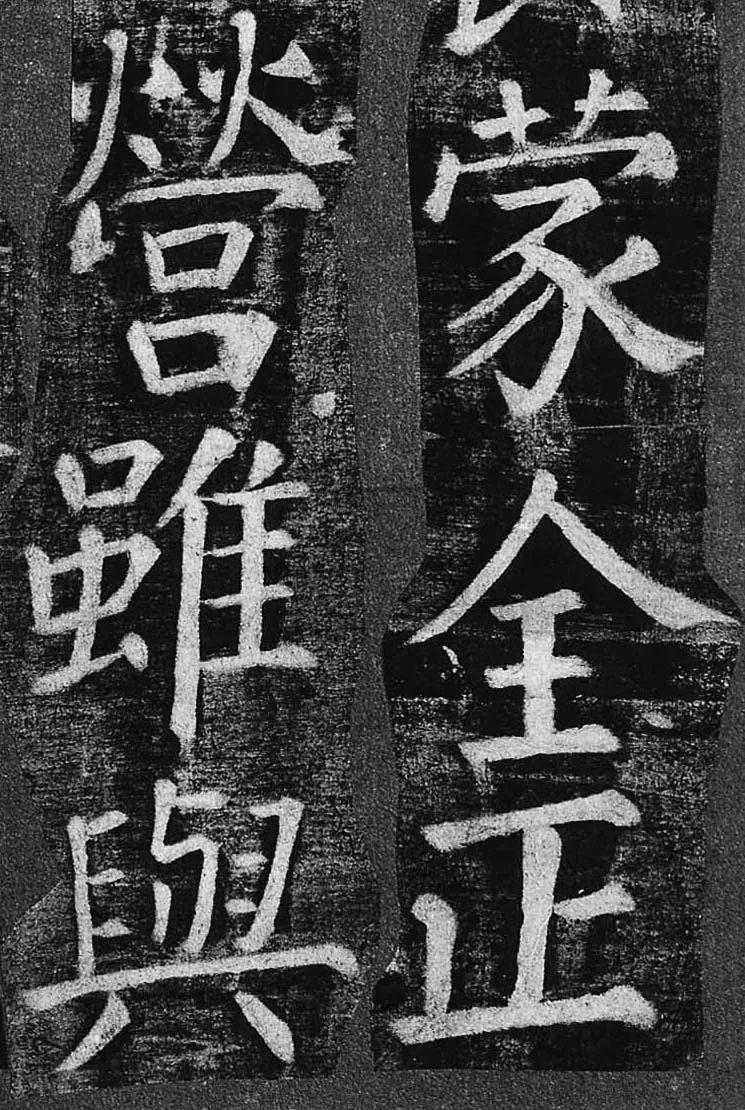 蒙全正
營雖與